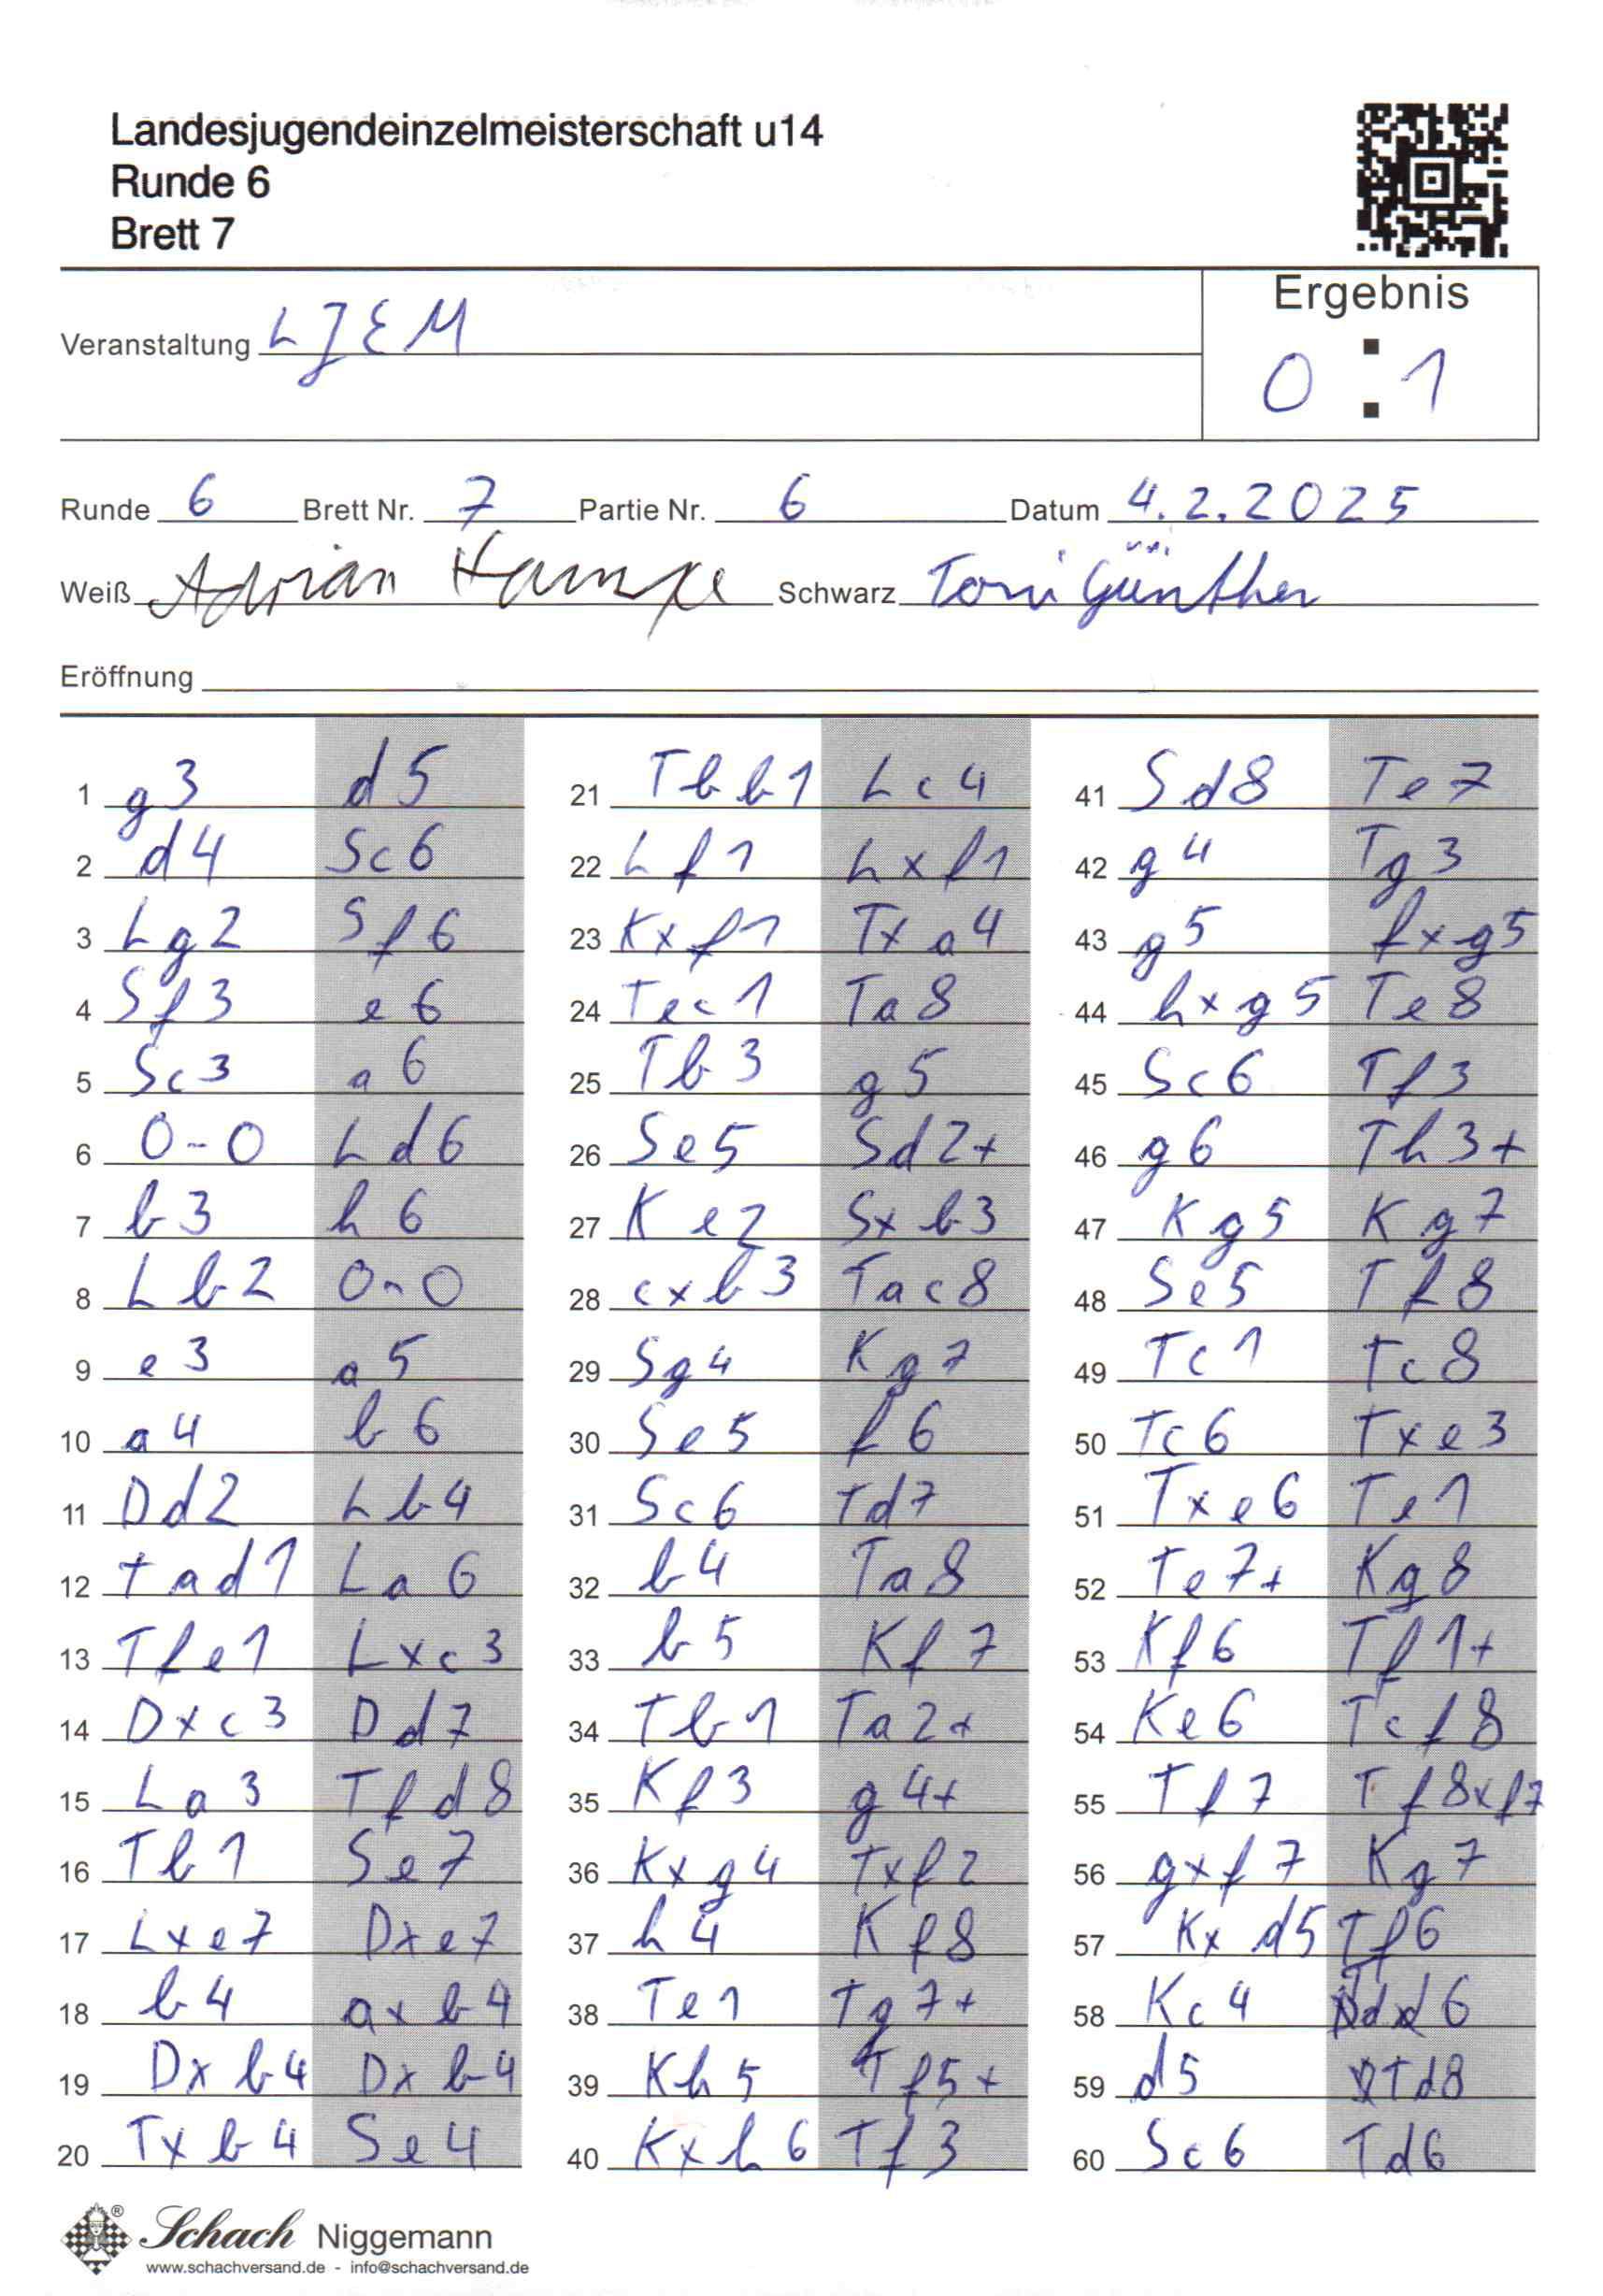 Landesjugendeinzelmeisterschaft u14
Runde 6
Brett 7
Ergebnis
Veranstaltung LJEM
0 : 1
Runde 6 Brett Nr. 7 Partie Nr. 6 Datum 4.2.2025
Weiß Adrian Schwarz Toni Günther
Eröffnung
1 g3 d5
2 d4 Sc6
3 Lg2 Sf6
4 Sf3 e6
5 Sc3 a6
6 0-0 Ld6
7 b3 h6
8 Lb2 0-0
9 e3 a5
10 a4 b6
11 Dd2 Lb4
12 Tad1 La6
13 Tfe1 Lxc3
14 Dxc3 Dd7
15 La3 Tfd8
16 Tb1 Se7
17 Lxe7 Dxe7
18 b4 axb4
19 Dxb4 Dxb4
20 Txb4 Se4
21 Tbb1 Lc4
22 Lf1 Lxf1
23 Kxf1 Txa4
24 Tec1 Ta8
25 Tb3 g5
26 Se5 Sd2+
27 Ke2 Sxb3
28 cxb3 Tac8
29 Sg4 Kg7
30 Se5 f6
31 Sc6 Td7
32 b4 Ta8
33 b5 Kf7
34 Tb1 Ta2+
35 Kf3 g4+
36 Kxg4 Txf2
37 h4 Kf8
38 Te1 Tg7+
39 Kh5 Tf5+
40 Kxh6 Tf3
41 Sd8 Te7
42 g4 Tg3
43 g5 fxg5
44 hxg5 Te8
45 Sc6 Tf3
46 g6 Th3+
47 Kg5 Kg7
48 Se5 Tf8
49 Tc1 Tc8
50 Tc6 Txe3
51 Txe6 Te1
52 Te7+ Kg8
53 Kf6 Tf1+
54 Ke6 Tcf8
55 Tf7 Tf8xf7
56 gxf7 Kg7
57 Kxd5 Tf6
58 Kc4 d6
59 d5 Td8
60 Sc6 Td6
Schach Niggemann
www.schachversand.de - info@schachversand.de